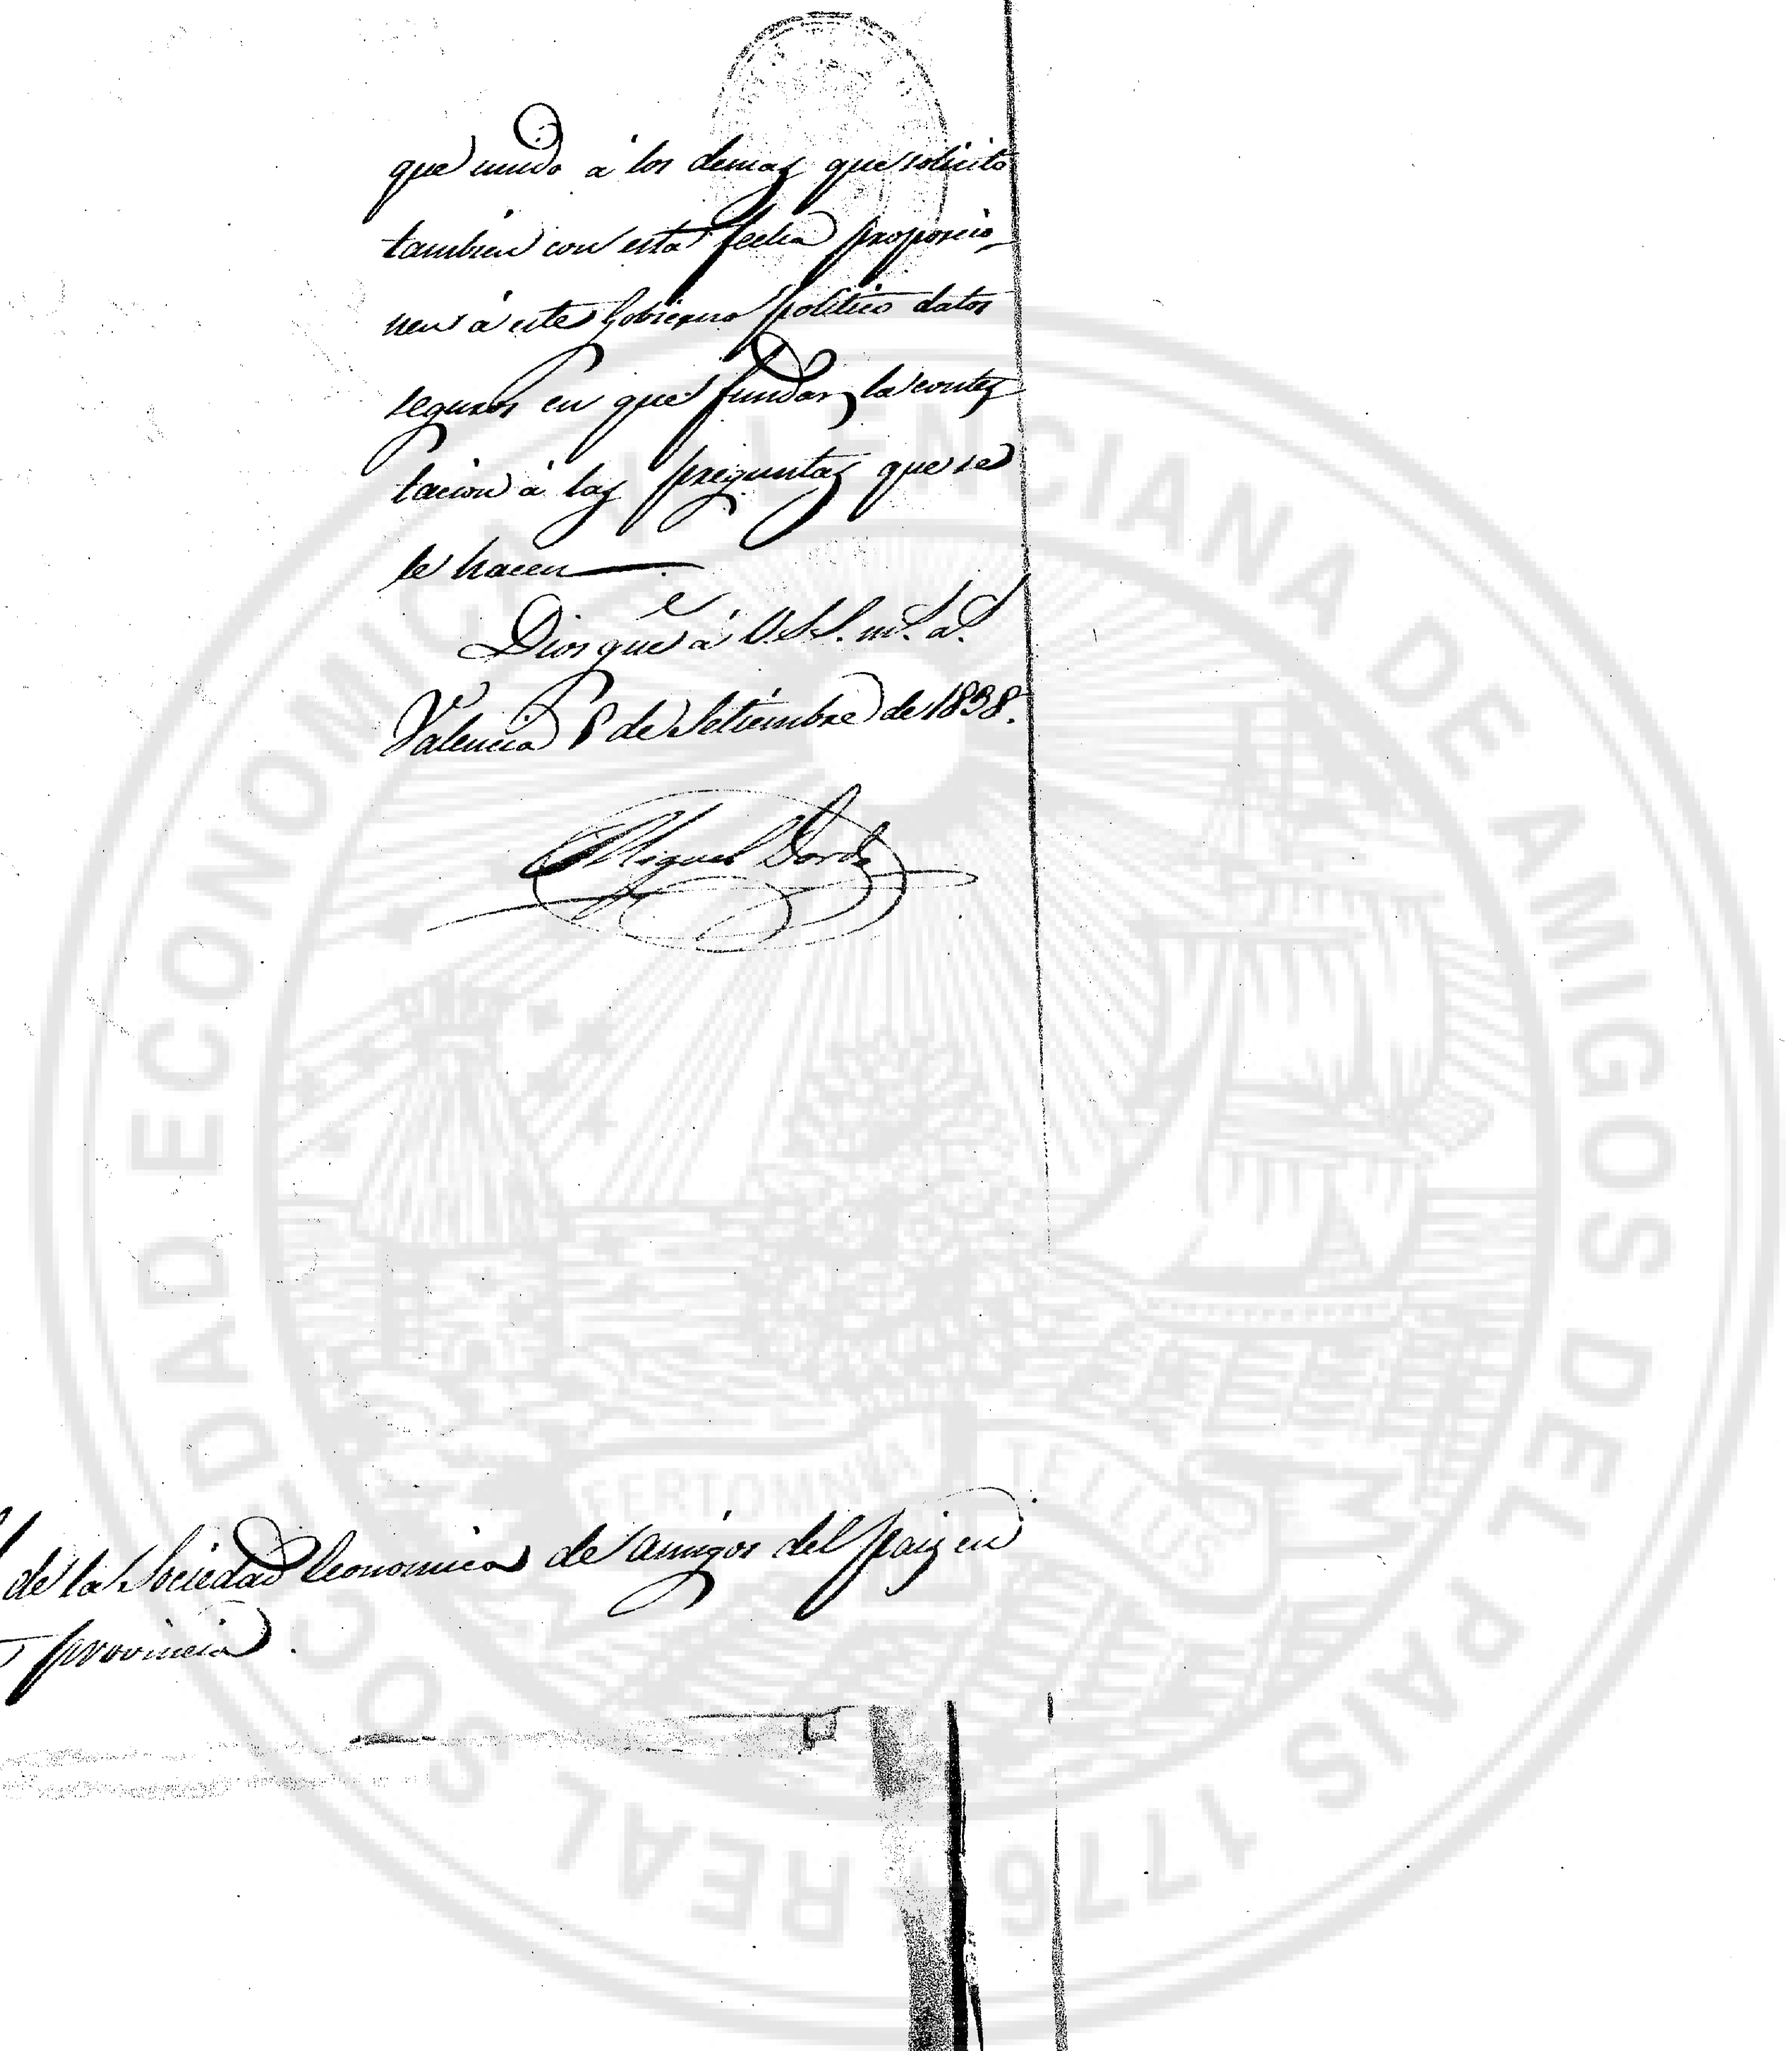 que unido á los demas que solicito
tambien con esta fecha proporcio-
nen á este Gobierno politico datos
seguros en que fundar la contes
tacion á las preguntas que se
le hacen
Dios gue á V.S.S. ms. as.
Valencia 8 de Setiembre de 1838.
Miguel Dorda
de la Sociedad Economica de amigos del pais en
provincia.
REAL SOCIEDAD ECONOMICA VALENCIANA DE AMIGOS DEL PAIS 1776